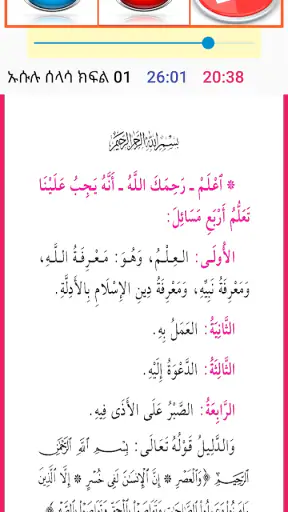 ኡሱሉ ሰላሳ ክፍል 01 26:01 20:38
بِسْمِ اللَّهِ الرَّحْمَٰنِ الرَّحِيمِ
* ٱعْلَمْ ـ رَحِمَكَ اللَّهُ ـ أَنَّهُ يَجِبُ عَلَيْنَا
تَعَلُّمُ أَرْبَعِ مَسَائِلَ:
الأُولَى: العِلْمُ، وَهُوَ: مَعْرِفَةُ اللَّهِ،
وَمَعْرِفَةُ نَبِيِّهِ، وَمَعْرِفَةُ دِينِ الإِسْلَامِ بِالأَدِلَّةِ.
الثَّانِيَةُ: العَمَلُ بِهِ.
الثَّالِثَةُ: الدَّعْوَةُ إِلَيْهِ.
الرَّابِعَةُ: الصَّبْرُ عَلَى الأَذَى فِيهِ.
وَالدَّلِيلُ قَوْلُهُ تَعَالَى: بِسْمِ اللَّهِ الرَّحْمَٰنِ
الرَّحِيمِ ﴿وَالْعَصْرِ * إِنَّ الْإِنسَانَ لَفِي خُسْرٍ * إِلَّا الَّذِينَ